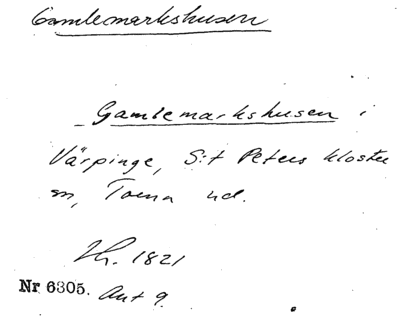 Gamlemarkshusen
Gamlemarkshusen i
Värpinge, S:t Peters kloster
sn, Torna hd.
Th. 1821
Nr 6305. Ant 9.